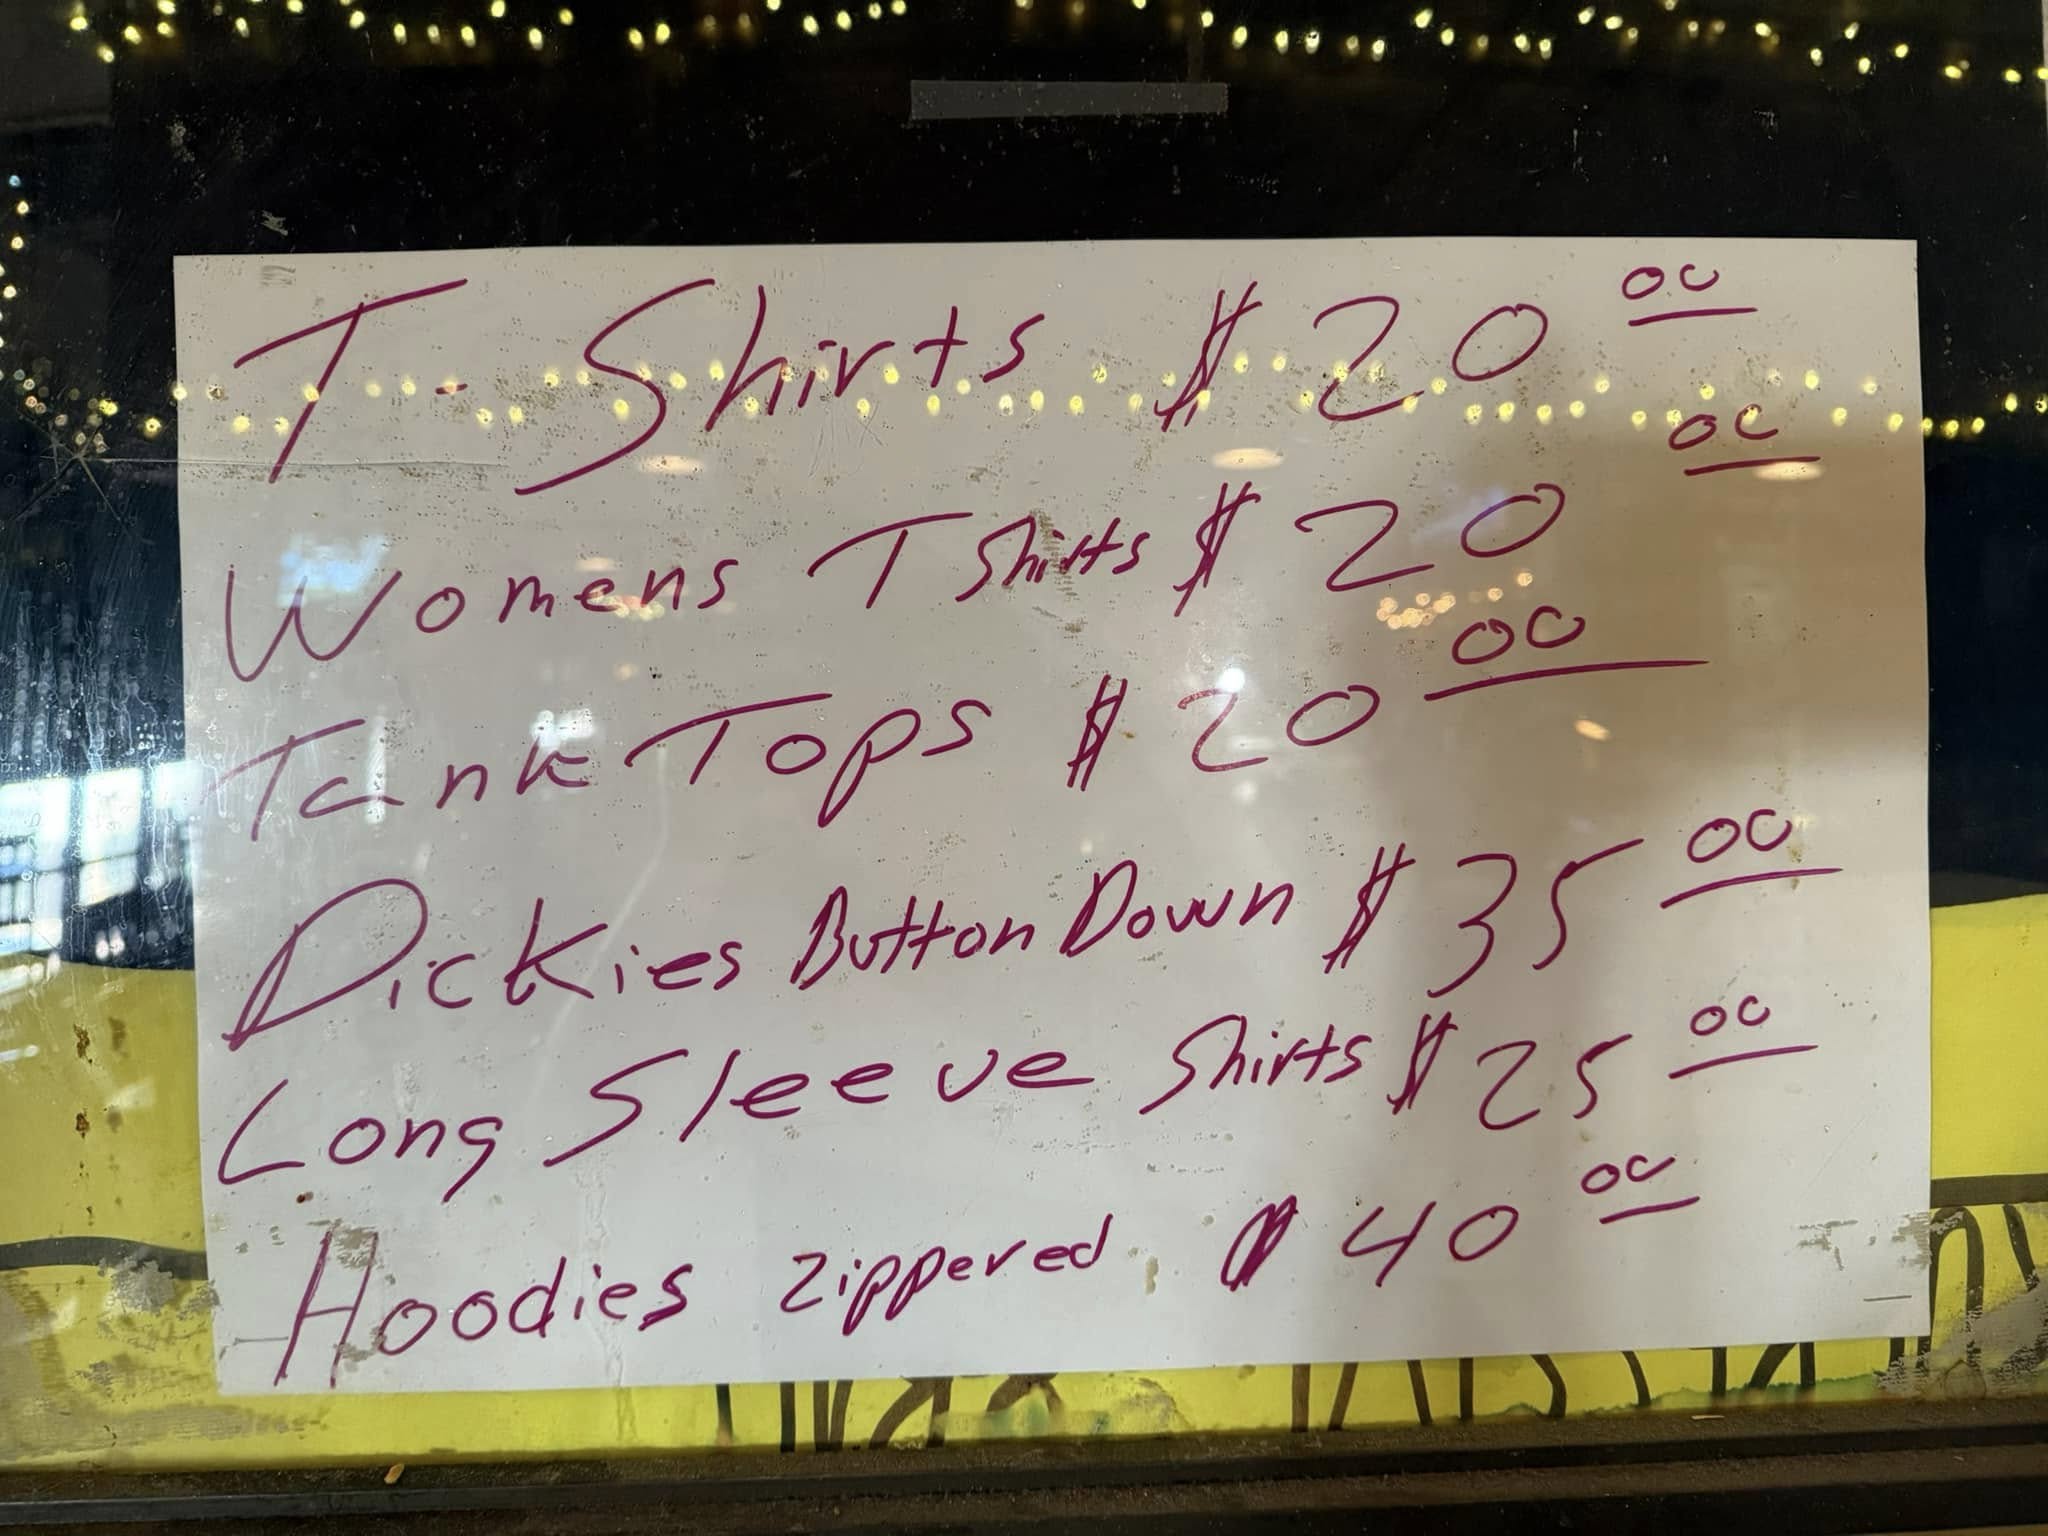 T-Shirts $20 00
Womens T Shirts $20 00
Tank Tops $20 00
Dickies Button Down $35 00
Long Sleeve Shirts $25 00
Hoodies zippered $40 00